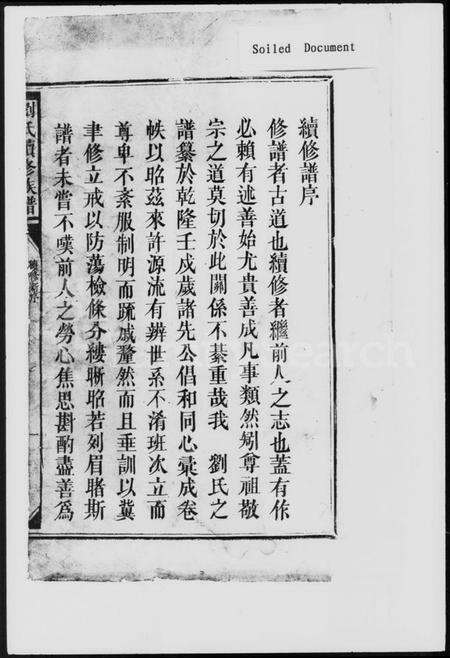 Soiled Document
續修譜序
修譜者古道也續修者繼前人之志也蓋有作
必賴有述善始尤貴善成凡事類然矧尊祖敬
宗之道莫切於此關係不綦重哉我 劉氏之
譜纂於乾隆壬戌歲諸先公倡和同心彙成卷
帙以昭茲來許源流有辨世系不淆班次立而
尊卑不紊服制明而疏戚釐然而且垂訓以冀
聿修立戒以防蕩檢條分縷晰昭若列眉睹斯
譜者未嘗不嘆前人之勞心焦思斟酌盡善為
劉氏續修族譜